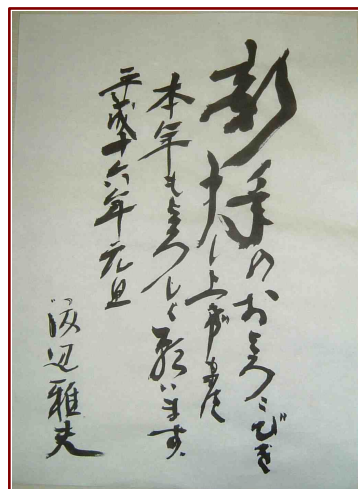 新春のおよろこびを
申し上げます
本年もよろしく願います。
平成十六年元旦
渡辺雅夫